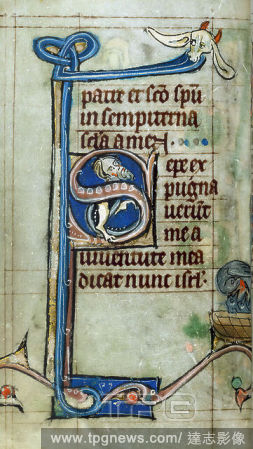 patre et sco spu
in sempiterna
scla amen
Sepe ex
pugna
verut
me a
iuventute mea
dicat nunc isrl'.
TPG
www.tpgnews.com/ 達志影像